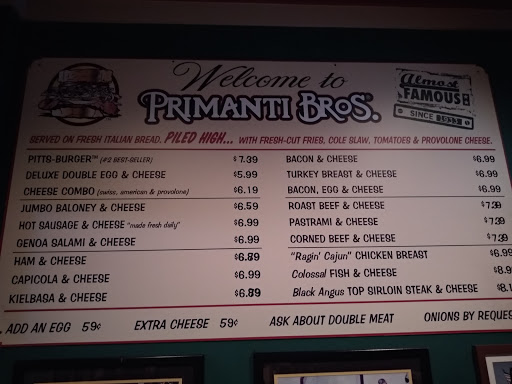 Welcome to
PRIMANTI BROS.
Almost
FAMOUS
SINCE 1933
SERVED ON FRESH ITALIAN BREAD. PILED HIGH... WITH FRESH-CUT FRIES, COLE SLAW, TOMATOES & PROVOLONE CHEESE.
PITTS-BURGER™ (#2 BEST-SELLER) $7.39
DELUXE DOUBLE EGG & CHEESE $5.99
CHEESE COMBO (swiss, american & provolone) $6.19
JUMBO BALONEY & CHEESE $6.59
HOT SAUSAGE & CHEESE "made fresh daily" $6.99
GENOA SALAMI & CHEESE $6.99
HAM & CHEESE $6.89
CAPICOLA & CHEESE $6.99
KIELBASA & CHEESE $6.89
BACON & CHEESE $6.99
TURKEY BREAST & CHEESE $6.99
BACON, EGG & CHEESE $6.99
ROAST BEEF & CHEESE $7.39
PASTRAMI & CHEESE $7.39
CORNED BEEF & CHEESE $7.39
"Ragin' Cajun" CHICKEN BREAST $6.99
Colossal FISH & CHEESE $8.9
Black Angus TOP SIRLOIN STEAK & CHEESE $8.
ADD AN EGG 59¢ EXTRA CHEESE 59¢ ASK ABOUT DOUBLE MEAT ONIONS BY REQUES